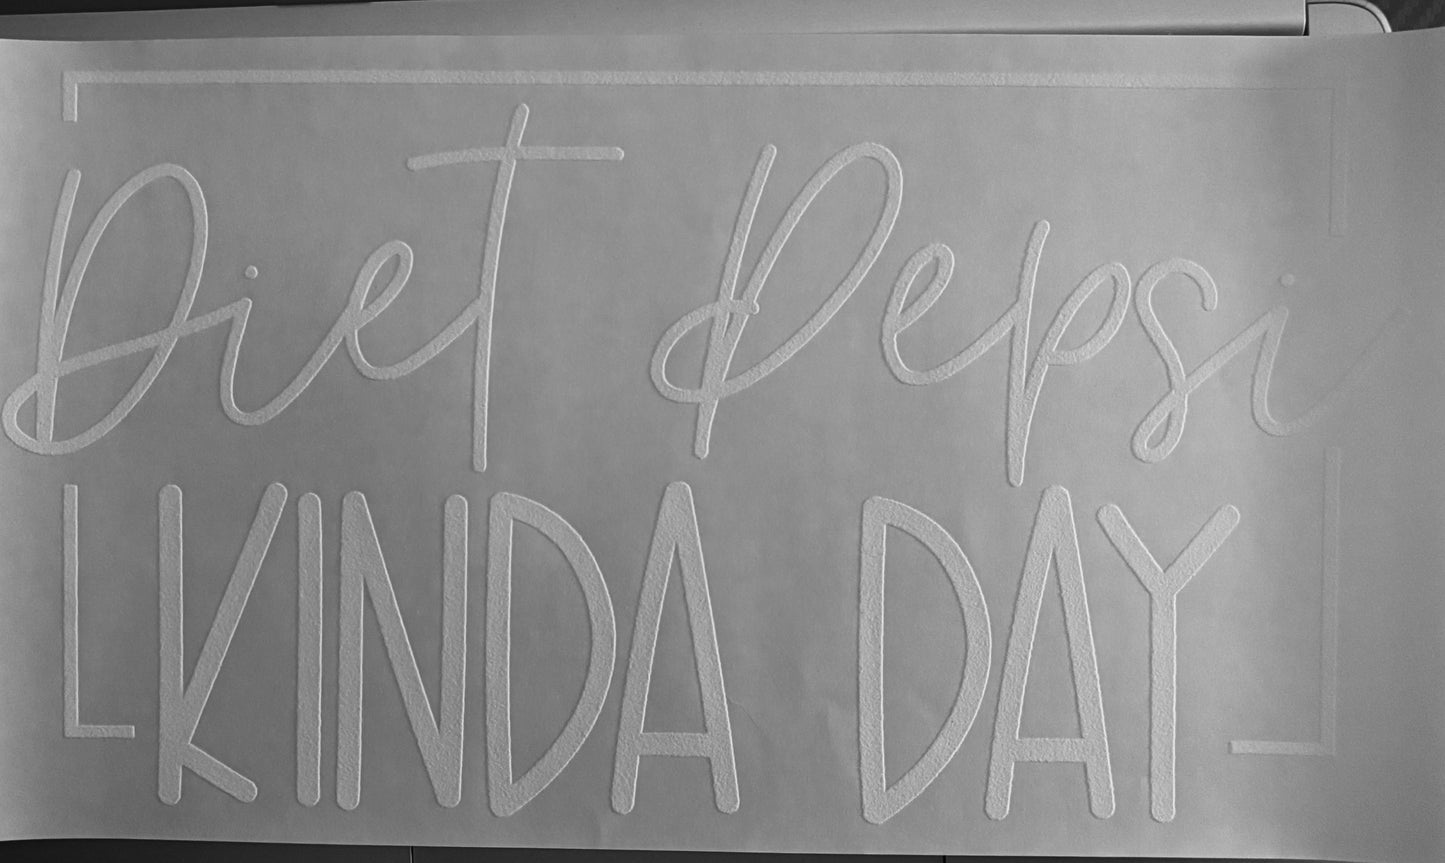 Diet Pepsi
KINDA DAY